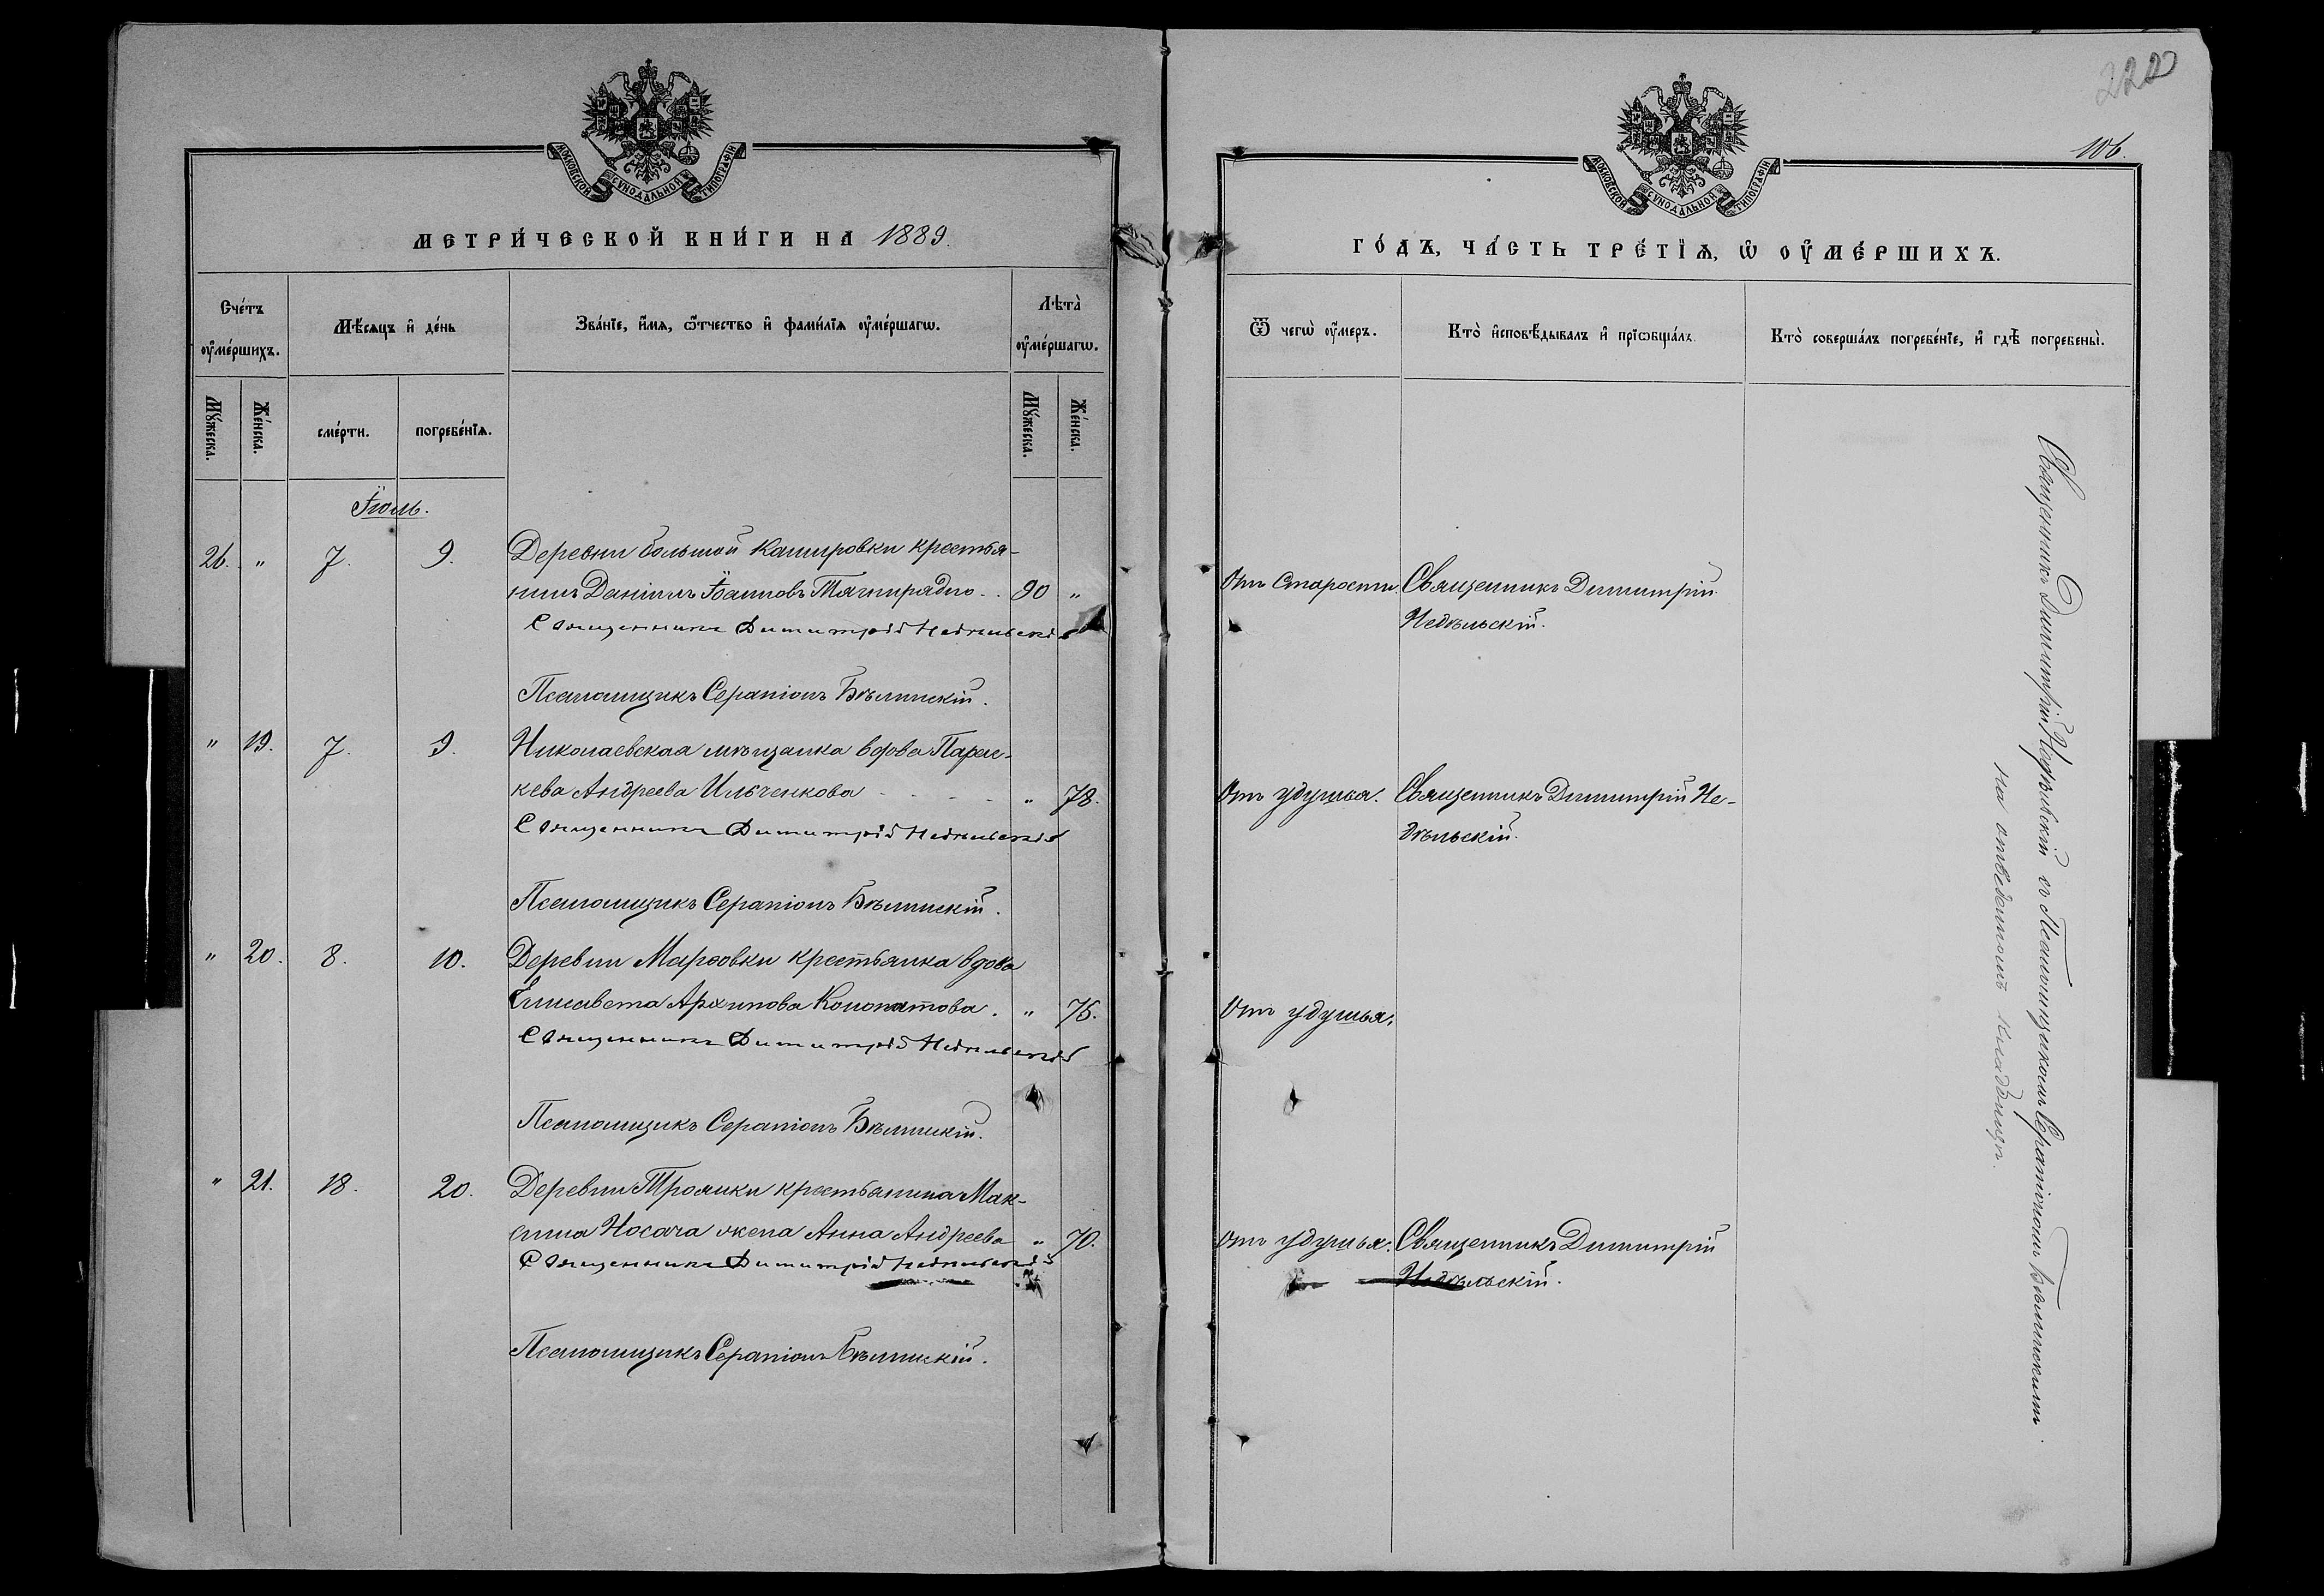 222
106.
МОСКОВСКОЙ СѴНОДАЛЬНОЙ ТИПОГРАФІИ
МЕТРИ́ЧЕСКОЙ КНИ́ГИ НА 1889.
Сче́тъ ᲂу҆ме́ршихъ.
Мѣ́сяцъ и҆ де́нь
Зва́нїе, и҆́мѧ, ѻ҆́тчество и҆ фами́лїѧ ᲂу҆ме́ршагѡ.
Лѣта̀ ᲂу҆ме́ршагѡ.
Мꙋ́жеска.
Же́нска.
сме́рти.
погребе́нїѧ.
Мꙋ́жеска.
Же́нска.
Іюль.
26. " 7. 9. Деревни большой Кашировки крестья-
нинъ Даніилъ Іоанновъ Тягнирядно . . 90 "
Священникъ Димитрій Недѣльскій
Псаломщикъ Серапіонъ Бѣлинскій.
" 19. 7. 9. Николаевская мѣщанка вдова Парас-
кева Андреева Ильченкова . . . . " 78.
Священникъ Димитрій Недѣльскій
Псаломщикъ Серапіонъ Бѣлинскій.
" 20. 8. 10. Деревни Марѳовки крестьянка вдова
Елисавета Архипова Конопатова . " 75.
Священникъ Димитрій Недѣльскій
Псаломщикъ Серапіонъ Бѣлинскій.
" 21. 18. 20. Деревни Троянки крестьянина Мак-
сима Носача жена Анна Андреева " 70.
Священникъ Димитрій Недѣльскій
Псаломщикъ Серапіонъ Бѣлинскій.
МОСКОВСКОЙ СѴНОДАЛЬНОЙ ТИПОГРАФІИ
ГО́ДЪ, ЧА́СТЬ ТРЕ́ТЇѦ, Ѡ҆ ОУ҆МЕ́РШИХЪ.
Ѿ чегѡ̀ ᲂу҆́меръ.
Кто̀ и҆сповѣ́дывалъ и҆ прїѡбща́лъ.
Кто̀ соверша́лъ погребе́нїе, и҆ гдѣ̀ погребены̀.
Отъ старости. Священникъ Димитрій
Недѣльскій.
Отъ удушья. Священникъ Димитрій Не-
дѣльскій.
Отъ удушья.
Отъ удушья. Священникъ Димитрій
Недѣльскій.
Священникъ Димитрій Недѣльскій съ Псаломщикомъ Серапіономъ Бѣлинскимъ.
на отведенномъ кладбищѣ.